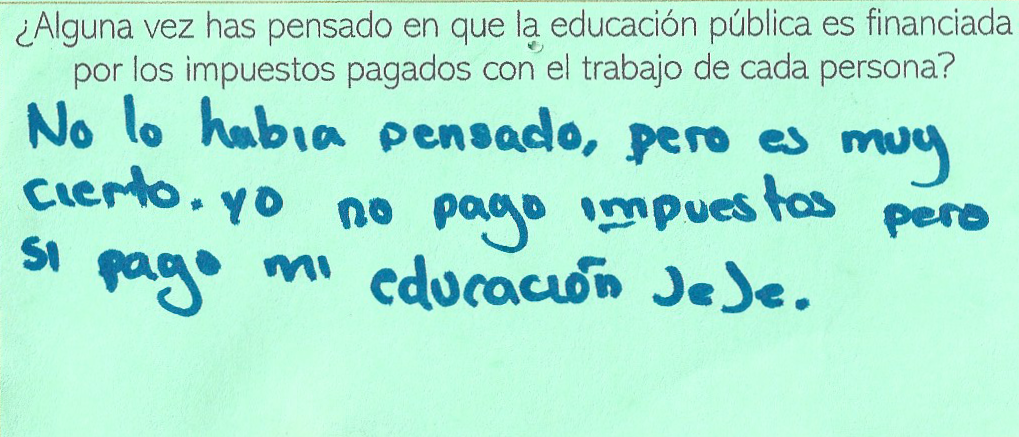 ¿Alguna vez has pensado en que la educación pública es financiada
por los impuestos pagados con el trabajo de cada persona?
No lo habia pensado, pero es muy
cierto. yo no pago impuestos pero
si pago mi educación JeJe.